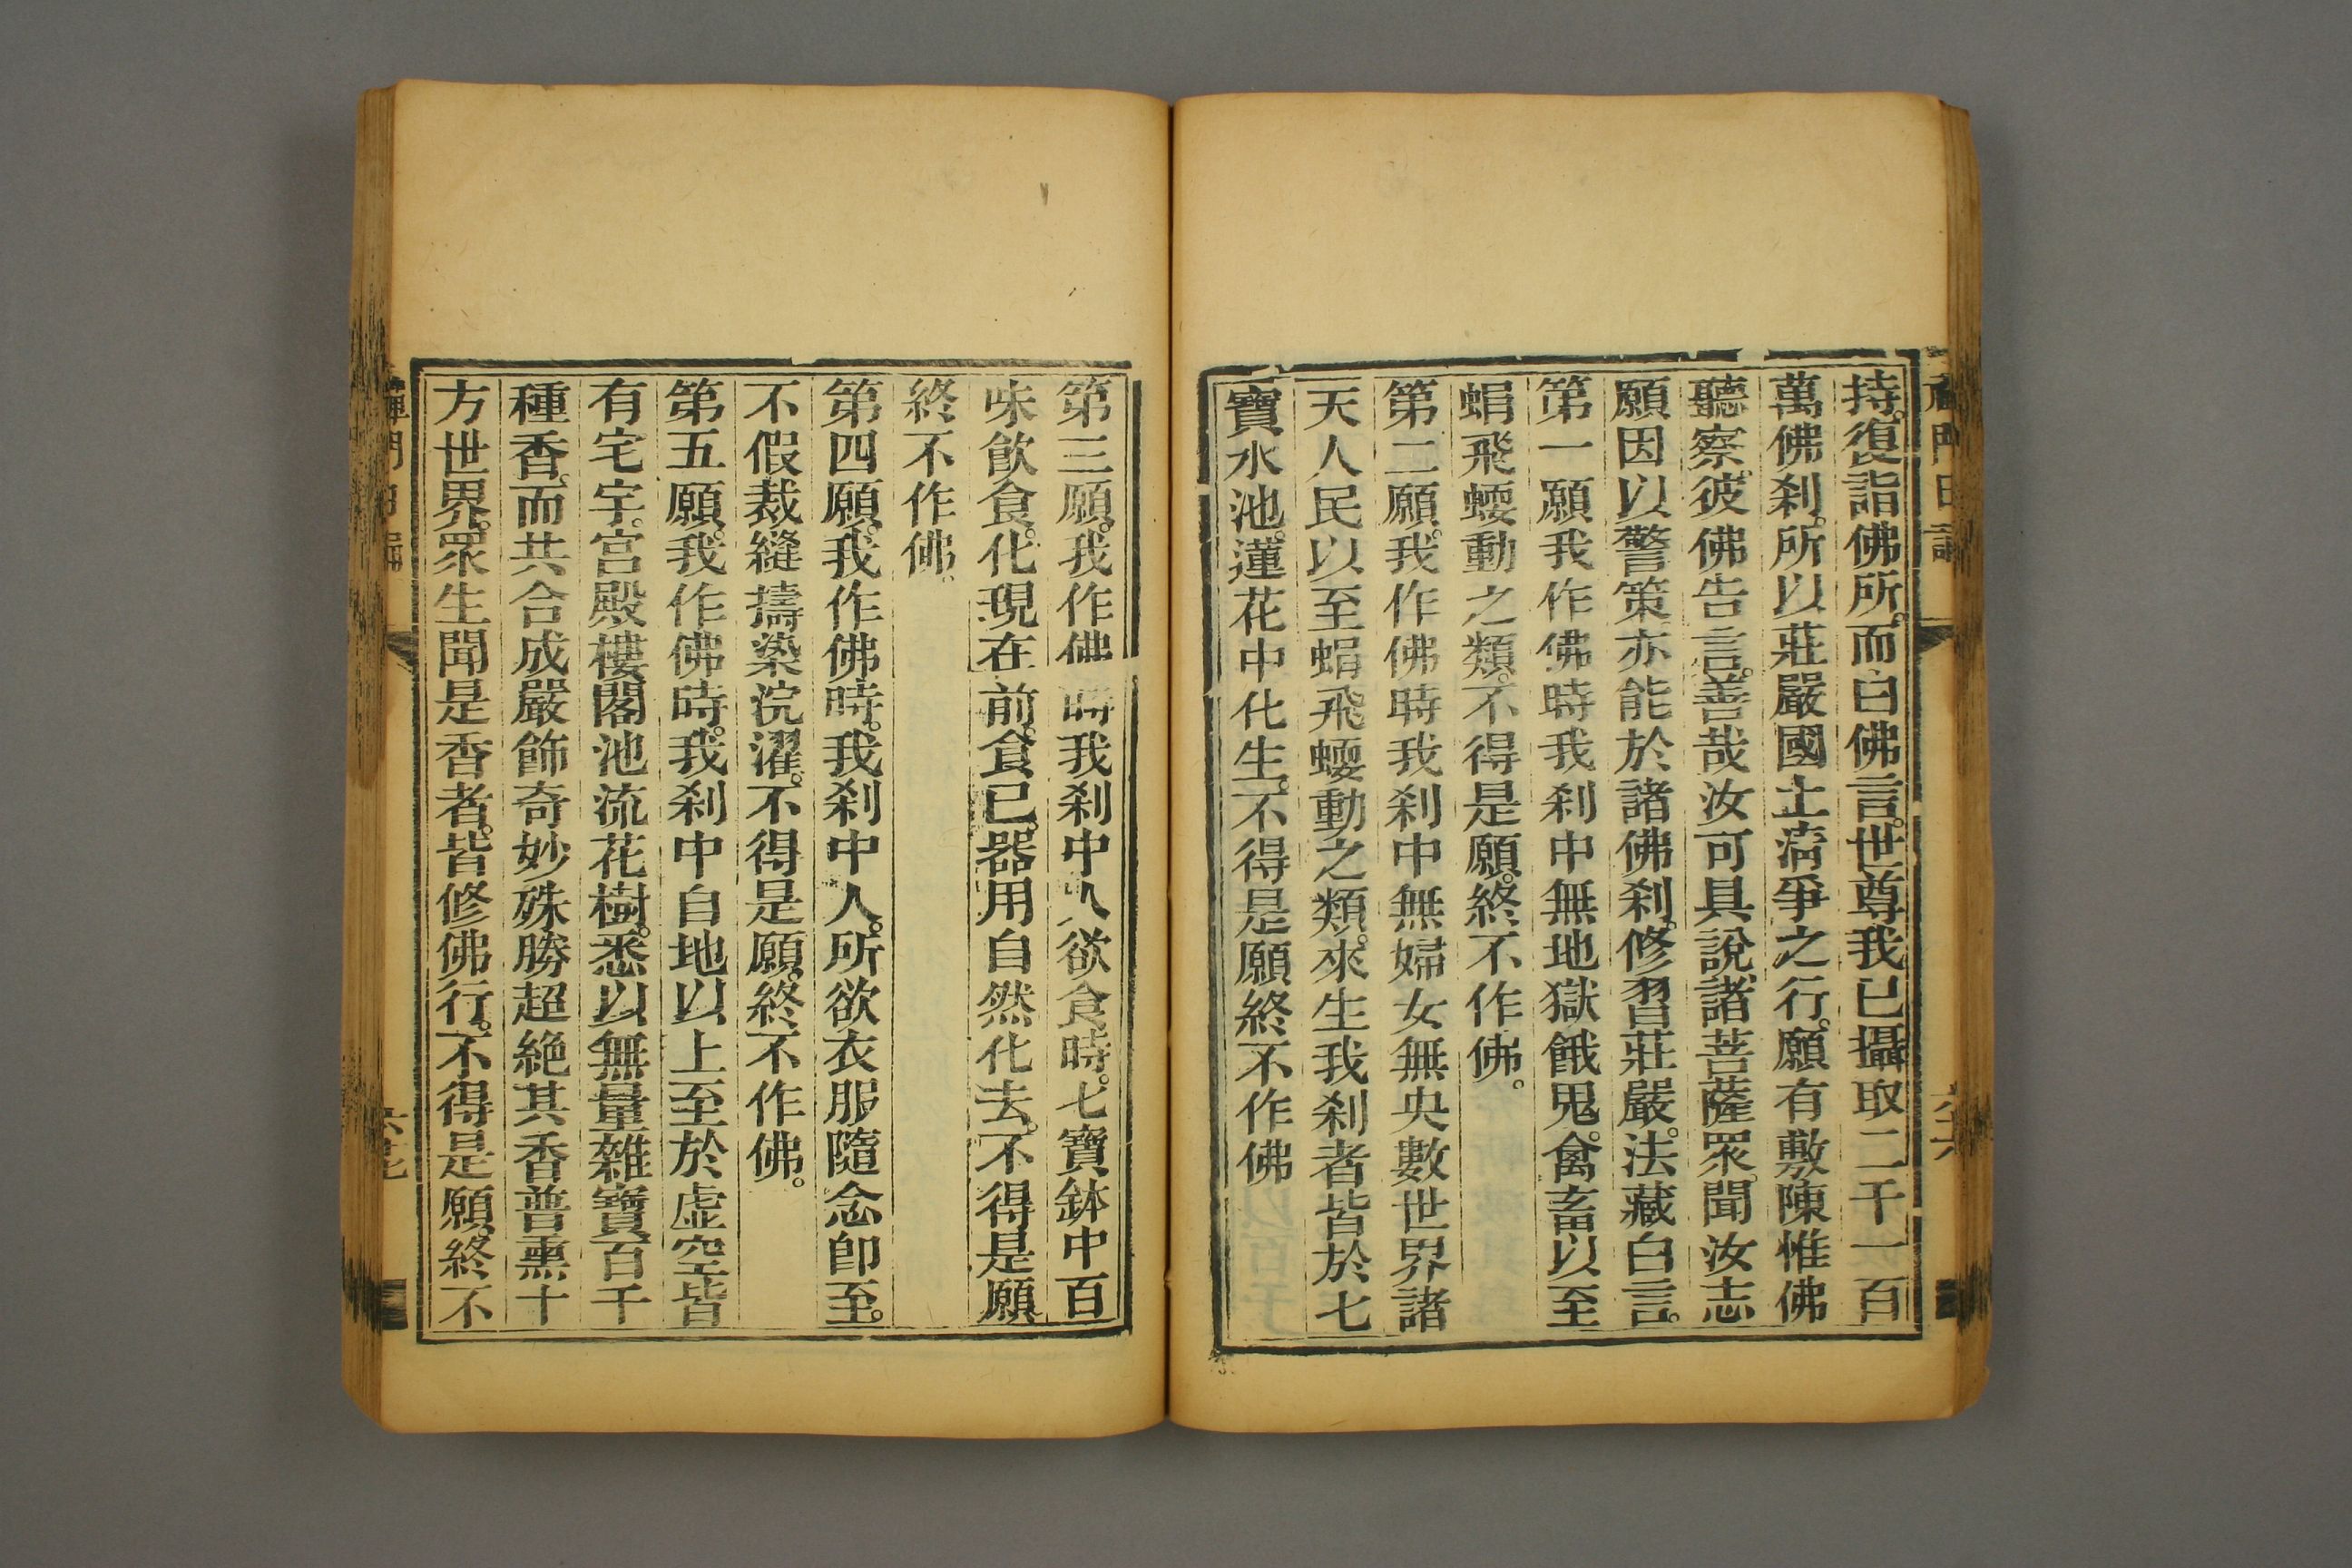 持。復詣佛所。而白佛言。世尊我已攝取二千一百
萬佛刹。所以莊嚴國土淸爭之行。願有敷陳惟佛
聽察。彼佛告言。善哉汝可具說。諸菩薩眾聞汝志
願因以警策。亦能於諸佛刹。修習莊嚴。法藏白言。
第一願我作佛時我刹中無地獄餓鬼。禽畜以至
蜎飛蝡動之類。不得是願。終不作佛。
第二願。我作佛時我刹中無婦女無央數世界諸
天人民以至蜎飛蝡動之類。來生我刹者皆於七
寶水池。蓮花中化生。不得是願終不作佛
第三願。我作佛時我刹中人欲食時。七寶鉢中百
味飲食。化現在前。食已。器用自然化去。不得是願
終不作佛。
第四願。我作佛時。我刹中人。所欲衣服隨念卽至。
不假裁縫擣染浣濯。不得是願。終不作佛。
第五願。我作佛時。我刹中自地以上至於虛空皆
有宅宇。宮殿樓閣池流花樹。悉以無量雜寶。百千
種香。而共合成嚴飾奇妙殊勝超絶其香普熏十
方世界。眾生聞是香者。皆修佛行。不得是願。終不